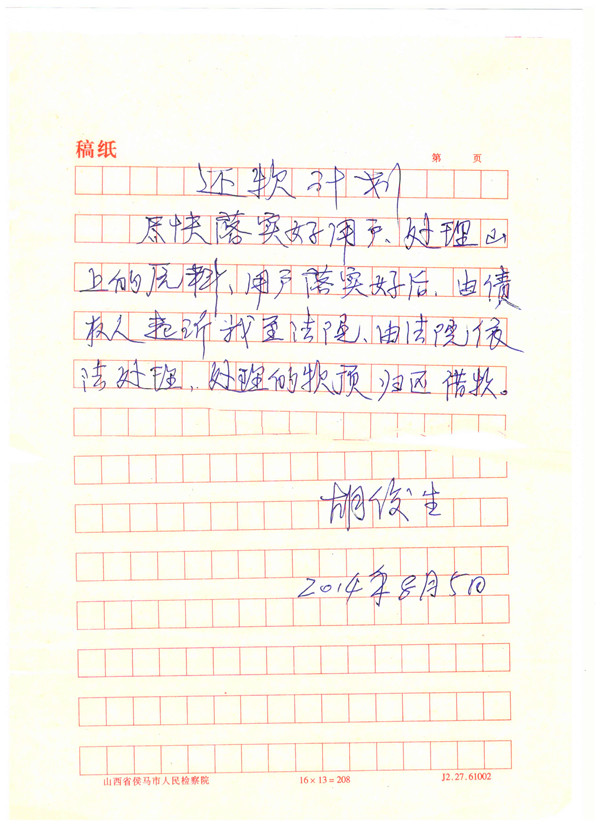 稿纸
第 页
还款计划
尽快落实好用户、处理山
上的原料、用户落实好后、由债
权人起诉我至法院、由法院依
法处理、处理的款项归还借款。
胡俊生
2014年8月5日
山西省侯马市人民检察院 16×13=208 J2.27.61002